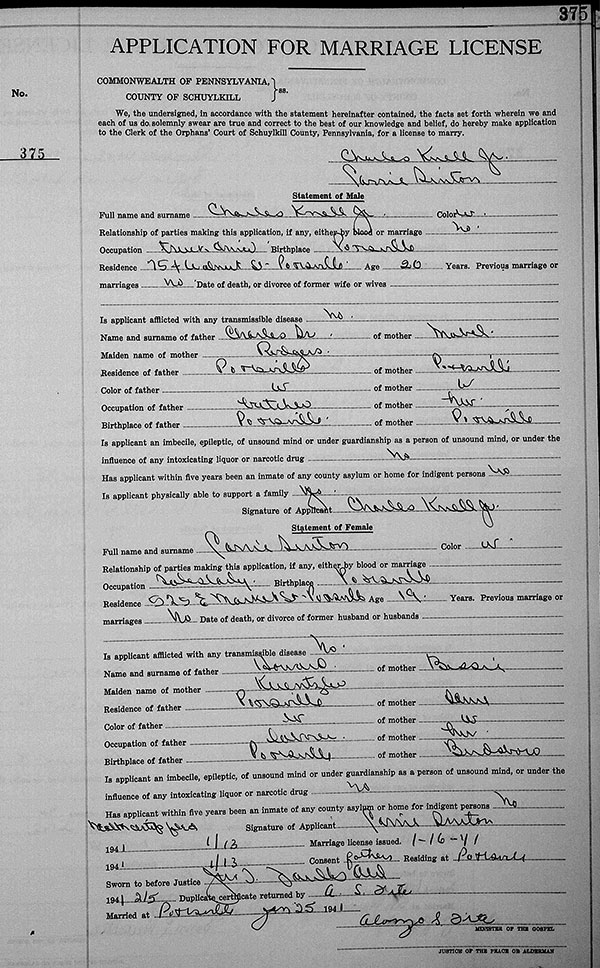 375
APPLICATION FOR MARRIAGE LICENSE
No.
COMMONWEALTH OF PENNSYLVANIA,
COUNTY OF SCHUYLKILL } ss.
We, the undersigned, in accordance with the statement hereinafter contained, the facts set forth wherein we and
each of us do solemnly swear are true and correct to the best of our knowledge and belief, do hereby make application
to the Clerk of the Orphans' Court of Schuylkill County, Pennsylvania, for a license to marry.
375
Charles Knell Jr.
Statement of Male
Full name and surname Charles Knell Jr. Color w.
Relationship of parties making this application, if any, either by blood or marriage no.
Occupation Birthplace Pottsville
Residence 754 Walnut St Pottsville Age 20 Years. Previous marriage or
marriages no Date of death, or divorce of former wife or wives
Is applicant afflicted with any transmissible disease no.
Name and surname of father Charles Sr of mother Mabel
Maiden name of mother Rodgers
Residence of father Pottsville of mother Pottsville
Color of father w of mother w
Occupation of father butcher of mother hw
Birthplace of father Pottsville of mother Pottsville
Is applicant an imbecile, epileptic, of unsound mind or under guardianship as a person of unsound mind, or under the
influence of any intoxicating liquor or narcotic drug no
Has applicant within five years been an inmate of any county asylum or home for indigent persons no
Is applicant physically able to support a family
Signature of Applicant Charles Knell Jr.
Statement of Female
Full name and surname Color w
Relationship of parties making this application, if any, either by blood or marriage
Occupation Saleslady Birthplace Pottsville
Residence 925 E Market St Pottsville Age 19 Years. Previous marriage or
marriages no Date of death, or divorce of former husband or husbands
Is applicant afflicted with any transmissible disease no.
Name and surname of father Howard of mother Bessie
Maiden name of mother
Residence of father Pottsville of mother
Color of father w of mother w
Occupation of father of mother hw
Birthplace of father Pottsville of mother
Is applicant an imbecile, epileptic, of unsound mind or under guardianship as a person of unsound mind, or under the
influence of any intoxicating liquor or narcotic drug no
Has applicant within five years been an inmate of any county asylum or home for indigent persons no
Signature of Applicant
194 1/13 Marriage license issued. 1-16-41
194 1/13 Consent father Residing at Pottsville
Sworn to before Justice
1941 2/5 Duplicate certificate returned by A. S. Fite
Married at Pottsville Jan 25 1941 Alonzo S Fite
MINISTER OF THE GOSPEL
JUSTICE OF THE PEACE OR ALDERMAN